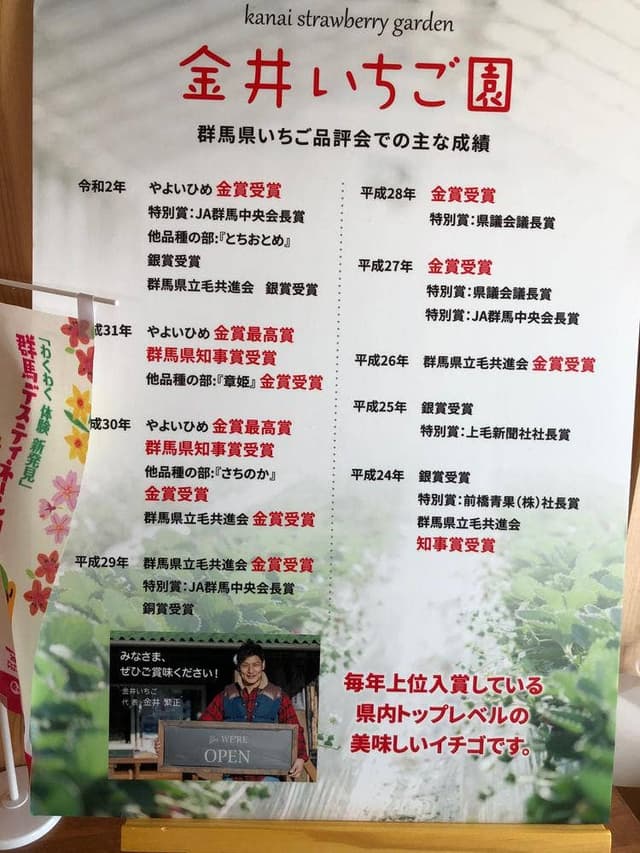 kanai strawberry garden
金井いちご園
群馬県いちご品評会での主な成績
令和2年 やよいひめ 金賞受賞
特別賞：JA群馬中央会長賞
他品種の部：『とちおとめ』
銀賞受賞
群馬県立毛共進会 銀賞受賞
成31年 やよいひめ 金賞最高賞
群馬県知事賞受賞
他品種の部：『章姫』金賞受賞
成30年 やよいひめ 金賞最高賞
群馬県知事賞受賞
他品種の部：『さちのか』
金賞受賞
群馬県立毛共進会 金賞受賞
平成29年 群馬県立毛共進会 金賞受賞
特別賞：JA群馬中央会長賞
銅賞受賞
平成28年 金賞受賞
特別賞：県議会議長賞
平成27年 金賞受賞
特別賞：県議会議長賞
特別賞：JA群馬中央会長賞
平成26年 群馬県立毛共進会 金賞受賞
平成25年 銀賞受賞
特別賞：上毛新聞社社長賞
平成24年 銀賞受賞
特別賞：前橋青果（株）社長賞
群馬県立毛共進会
知事賞受賞
みなさま、
ぜひご賞味ください！
金井いちご
代表 金井 繁正
Yes WE'RE
OPEN
毎年上位入賞している
県内トップレベルの
美味しいイチゴです。
「わくわく 体験 新発見」
群馬デスティネーション